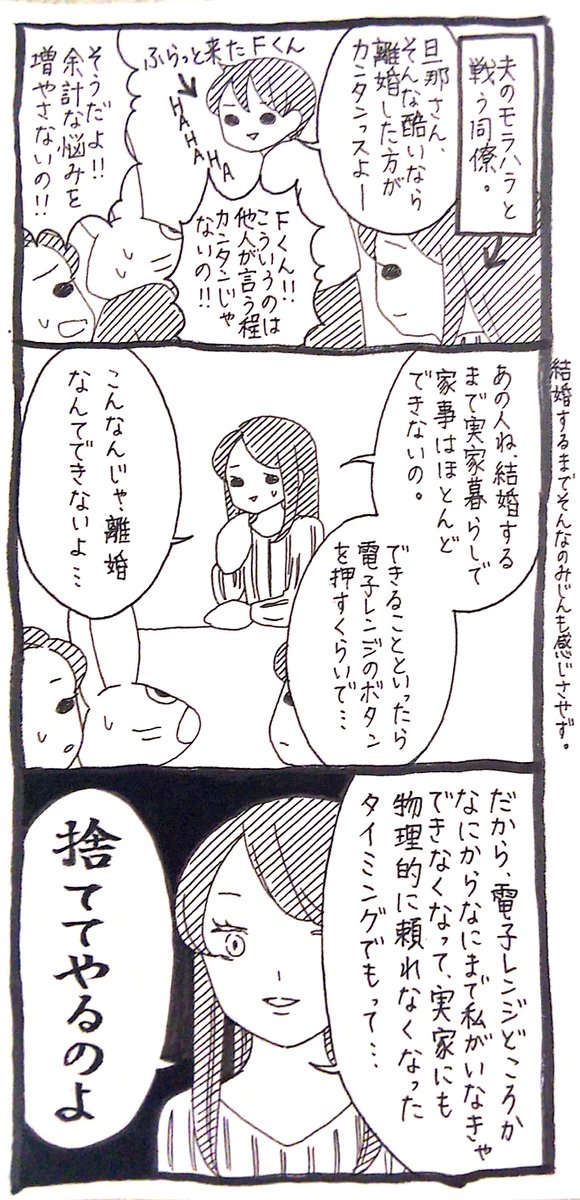 夫のモラハラと
戦う同僚。
旦那さん、
そんな酷いなら
離婚した方が
カンタンっスよー
ふらっと来たFくん
HAHAHAHA
Fくん!!
こういうのは
他人が言う程
カンタンじゃ
ないの!!
そうだよ!!
余計な悩みを
増やさないの!!
結婚するまでそんなのみじんも感じさせず。
あの人ね、結婚する
まで実家暮らしで
家事はほとんど
できないの。
できることといったら
電子レンジのボタン
を押すくらいで…
こんなんじゃ、離婚
なんてできないよ…
だから、電子レンジどころか
なにからなにまで私がいなきゃ
できなくなって、実家にも
物理的に頼れなくなった
タイミングでもって…
捨ててやるのよ